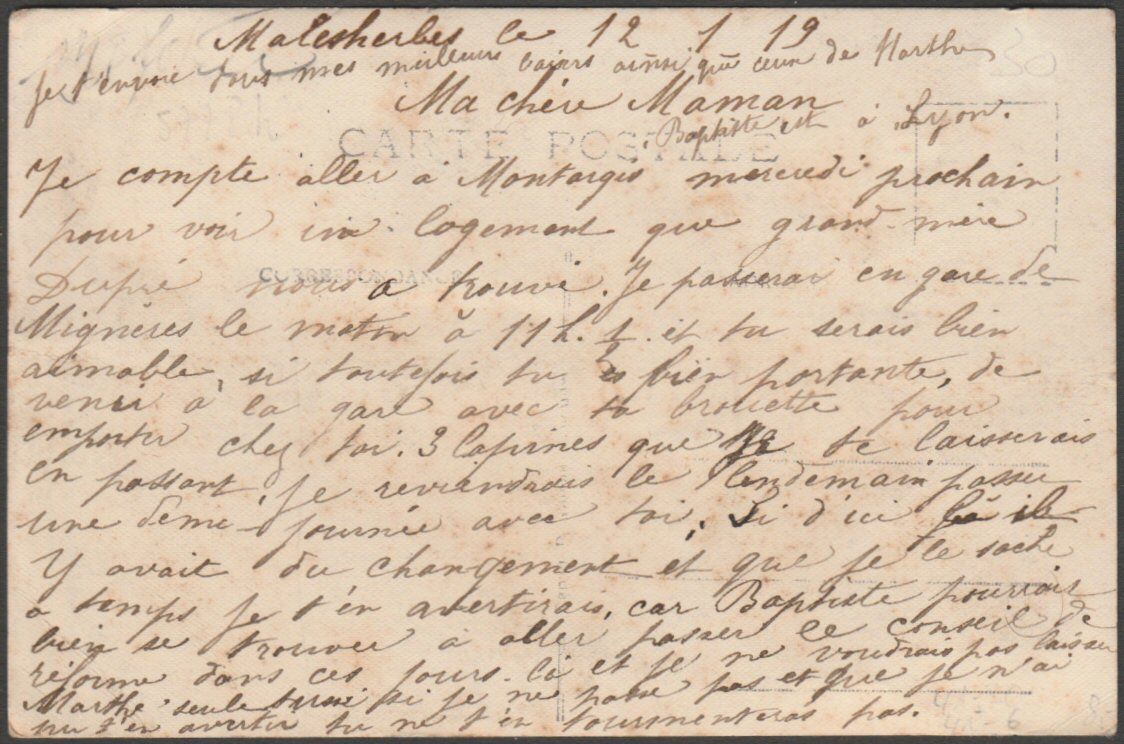 Malesherbes le 12 1 19
Je t'envoie tous mes meilleurs baisers ainsi que ceux de Marthe
Ma chère Maman
Baptiste est à Lyon.
CARTE POSTALE
Je compte aller à Montargis mercredi prochain
pour voir un logement que grand-mère
CORRESPONDANCE
Dupré nous a trouvé. Je passerai en gare de
Mignères le matin à 11 h. 1/2 et tu serais bien
aimable, si toutefois tu es bien portante, de
venir à la gare avec ta brouette pour
emporter chez toi 3 lapines que je te laisserais
en passant, je reviendrais le lendemain passer
une demie-journée avec toi. Si d'ici là il
Y avait du changement et que je le sache
à temps je t'en avertirais, car Baptiste pourrait
bien se trouver à aller passer le conseil de
réforme dans ces jours-ci et je ne voudrais pas laisser
Marthe seule aussi si je ne passe pas et que je n'ai
pu t'en avertir tu ne t'en tourmenteras pas.